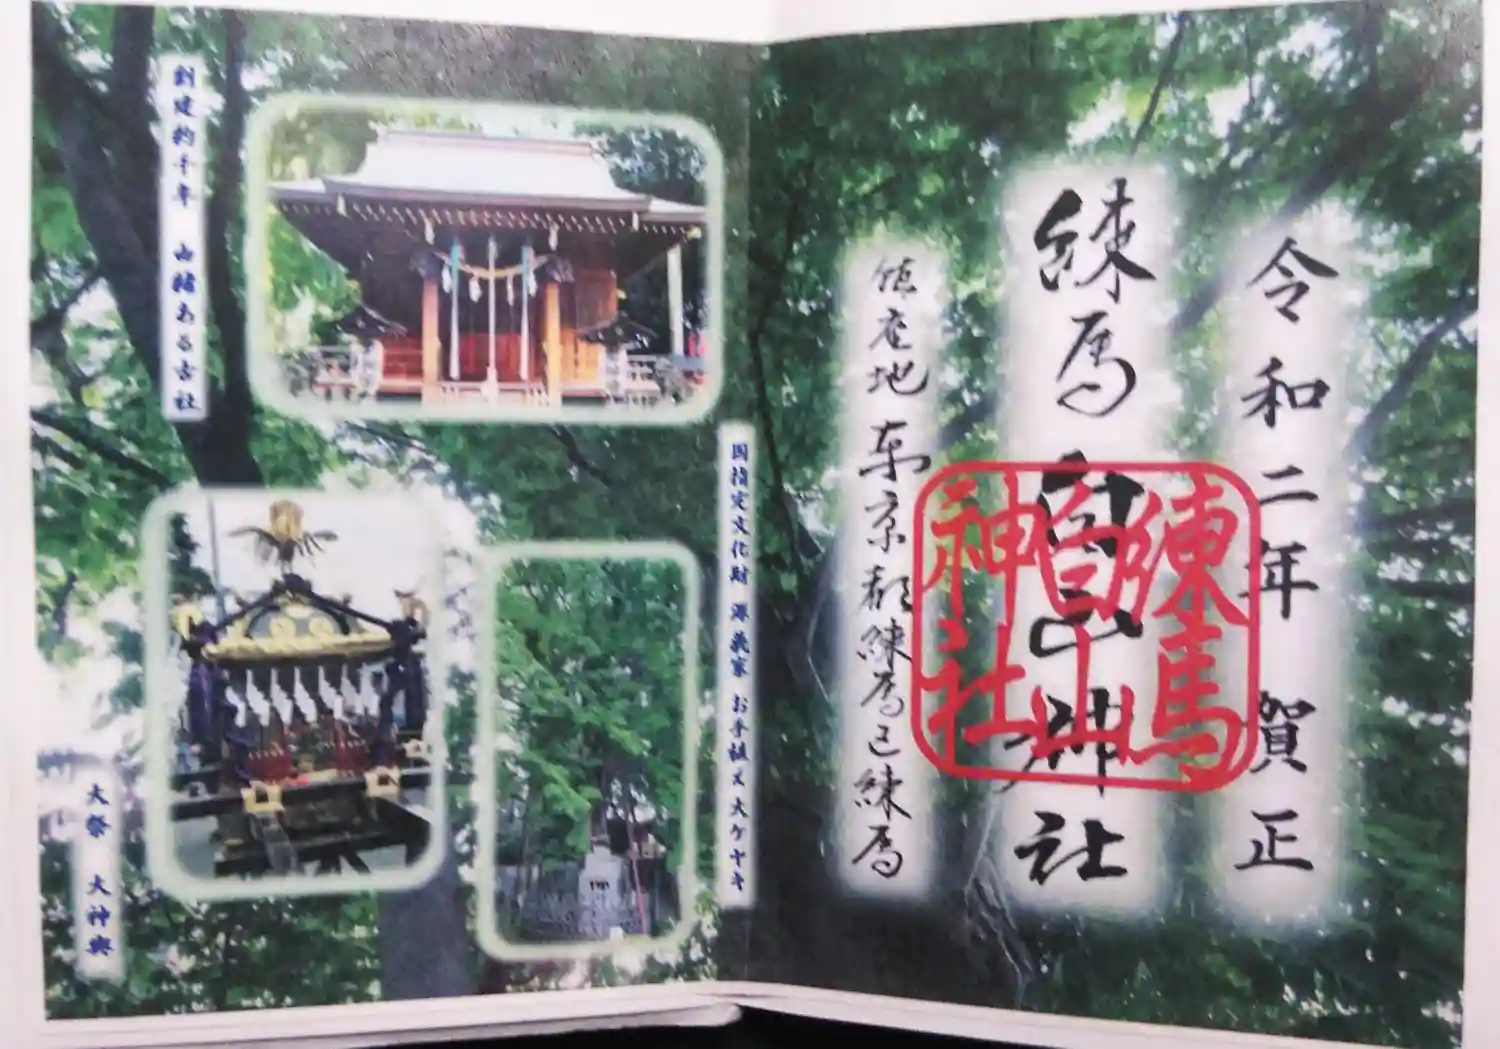 令和二年賀正
練馬白山神社
鎮座地 東京都練馬区練馬
練馬
白山
神社
国指定文化財 源義家 お手植え大ケヤキ
創建約千年 由緒ある古社
大祭 大神輿